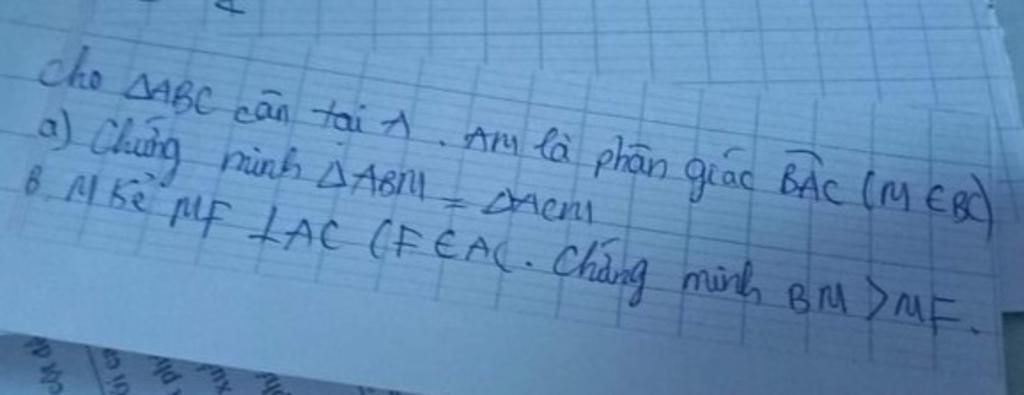 Cho ΔABC cân tại A. AM là phân giác BAC (M ∈ BC)
a) Chứng minh ΔABM = ΔACM
B. M Kẻ MF ⊥ AC (F ∈ AC. Chứng minh BM > MF.